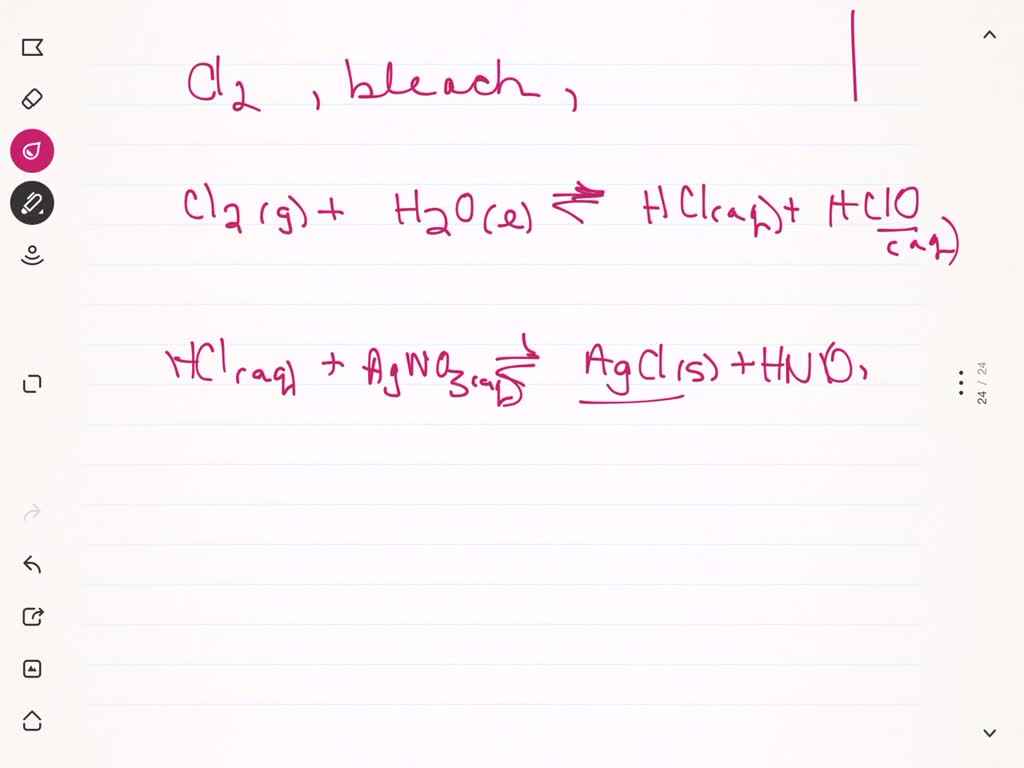 Cl2 , bleach ,
Cl2 (g) + H2O (l) ⇌ HCl (aq) + HClO (aq)
HCl (aq) + AgNO3 (aq) ⇌ AgCl (s) + HNO3
24 / 24